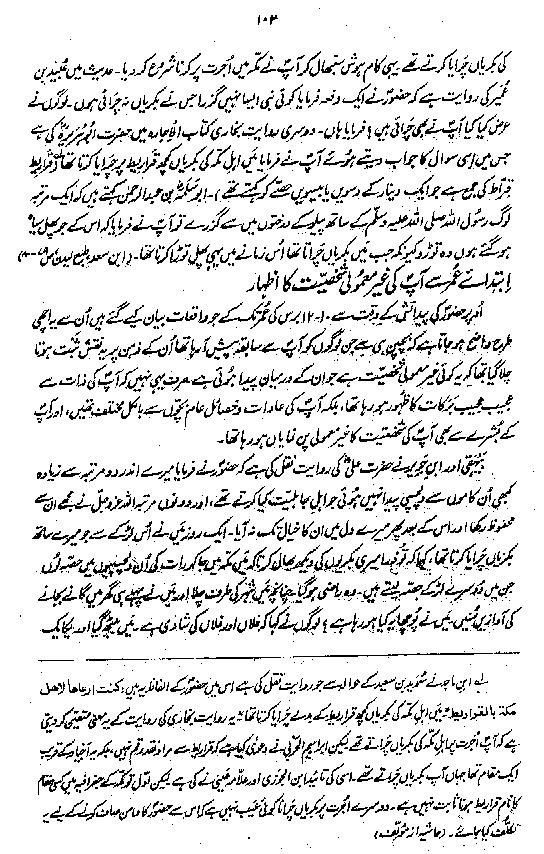 ۱۰۳
کی بکریاں چَرایا کرتے تھے یہی کام ہوش سنبھال کر آپؐ نے مکہ میں اُجرت پر کرنا شروع کر دیا۔ حدیث میں عُبَید بن
عُمَیر کی روایت ہے کہ حضورؐ نے ایک دفعہ فرمایا کوئی نبی ایسا نہیں گزرا جس نے بکریاں نہ چرائی ہوں۔ لوگوں نے
عرض کیا کیا آپؐ نے بھی چَرائی ہیں؟ فرمایا ہاں۔ دوسری روایت بخاری کتاب الاجارہ میں حضرت ابوہریرہؓ کی ہے
جس میں اِسی سوال کا جواب دیتے ہوئے آپؐ نے فرمایا میں اہلِ مکہ کی بکریاں کچھ قراریط پر چَرایا کرتا تھا (قراریط
قیراط کی جمع ہے جو ایک دینار کے دسویں یا بیسویں حصّے کو کہتے تھے)۔ ابوسلمہؓ بن عبدالرحمٰن کہتے ہیں کہ ایک مرتبہ
لوگ رسول اللہ صلی اللہ علیہ وسلم کے ساتھ پیلو کے درختوں میں سے گزرے تو آپؐ نے فرمایا کہ اس کے جو پھل سیاہ
ہو گئے ہوں وہ توڑو کیونکہ جب میں بکریاں چَراتا تھا اُس زمانے میں یہی پھل توڑا کرتا تھا۔ (ابن سعد
اِبتدائے عُمر سے آپؐ کی غیر معمولی شخصیّت کا اظہار
اُوپر حضورؐ کی پیدائش کے وقت سے ۱۰-۱۲ برس کی عُمر تک کے جو واقعات بیان کیے گئے ہیں اُن سے یہ اچھی
طرح واضح ہو جاتا ہے کہ بچپن ہی سے جن لوگوں کو آپؐ سے سابقہ پیش آ رہا تھا اُن کے ذہن پر یہ نقش ثبت ہوتا
چلا گیا تھا کہ یہ کوئی غیر معمولی شخصیّت ہے جو ان کے درمیان پیدا ہوئی ہے۔ صرف یہی نہیں کہ آپؐ کی ذات سے
عجیب عجیب برکات کا ظہور ہو رہا تھا، بلکہ آپؐ کی عادات و خصائل عام بچّوں سے بالکل مختلف تھیں، اور آپؐ
کے بُشرے سے بھی آپؐ کی شخصیّت کا غیر معمولی پن نمایاں ہو رہا تھا۔
بیہقی اور ابنِ جریر نے حضرت علیؓ کی روایت نقل کی ہے کہ حضورؐ نے فرمایا میرے اندر دو مرتبہ سے زیادہ
کبھی اُن کاموں سے دلچسپی پیدا نہیں ہوئی جو اہلِ جاہلیت کیا کرتے تھے، اور دونوں مرتبہ اللہ عزّوجلّ نے مجھے اُن سے
محفوظ رکھا اور اس کے بعد پھر میرے دل میں ان کا خیال تک نہ آیا۔ ایک روز میں نے اُس لڑکے سے جو میرے ساتھ
بکریاں چَرایا کرتا تھا، کہا کہ تو ذرا میری بکریوں کی دیکھ بھال کر تاکہ میں مکہ میں جا کر رات کی اُن دلچسپیوں میں حصّہ لوں
جن میں دوسرے لڑکے حصّہ لیتے ہیں۔ وہ راضی ہو گیا۔ چنانچہ میں شہر کی طرف چلا اور میں نے پہلے ہی گھر میں گانے بجانے
کی آوازیں سُنیں۔ میں نے پُوچھا یہ کیا ہو رہا ہے؟ لوگوں نے کہا کہ فلاں اور فلاں کی شادی ہے۔ میں بیٹھ گیا اور یکایک
لے ابن ماجہ نے سُوَید بن سعید کے حوالہ سے جو روایت نقل کی ہے اس میں حضورؐ کے الفاظ یہ ہیں: کنت ارعاھا لاھل
مکۃ بالقراریط "میں اہلِ مکہ کی بکریاں کچھ قراریط کے بدلے چَرایا کرتا تھا"۔ یہ روایت بخاری کی روایت کے یہ معنی متعین کر دیتی
ہے کہ آپؐ اُجرت پر اہلِ مکہ کی بکریاں چَراتے تھے لیکن ابراہیم الحَربی نے دعویٰ کیا ہے کہ قراریط سے مراد نقد رقم نہیں، بلکہ یہ اَجیاد کے قریب
ایک مقام تھا جہاں آپؐ بکریاں چَراتے تھے۔ اسی کی تائید ابن الجوزی اور علامہ عینی نے کی ہے لیکن اوّل تو مکہ کے جغرافیہ میں کسی مقام
کا نام قراریط ہونا ثابت نہیں ہے۔ دوسرے اُجرت پر بکریاں چَرانا کوئی عیب نہیں ہے کہ اس سے حضورؐ کا دامن صاف کرنے کے لیے یہ
تکلّف کیا جائے۔ (حاشیہ از مؤلف)